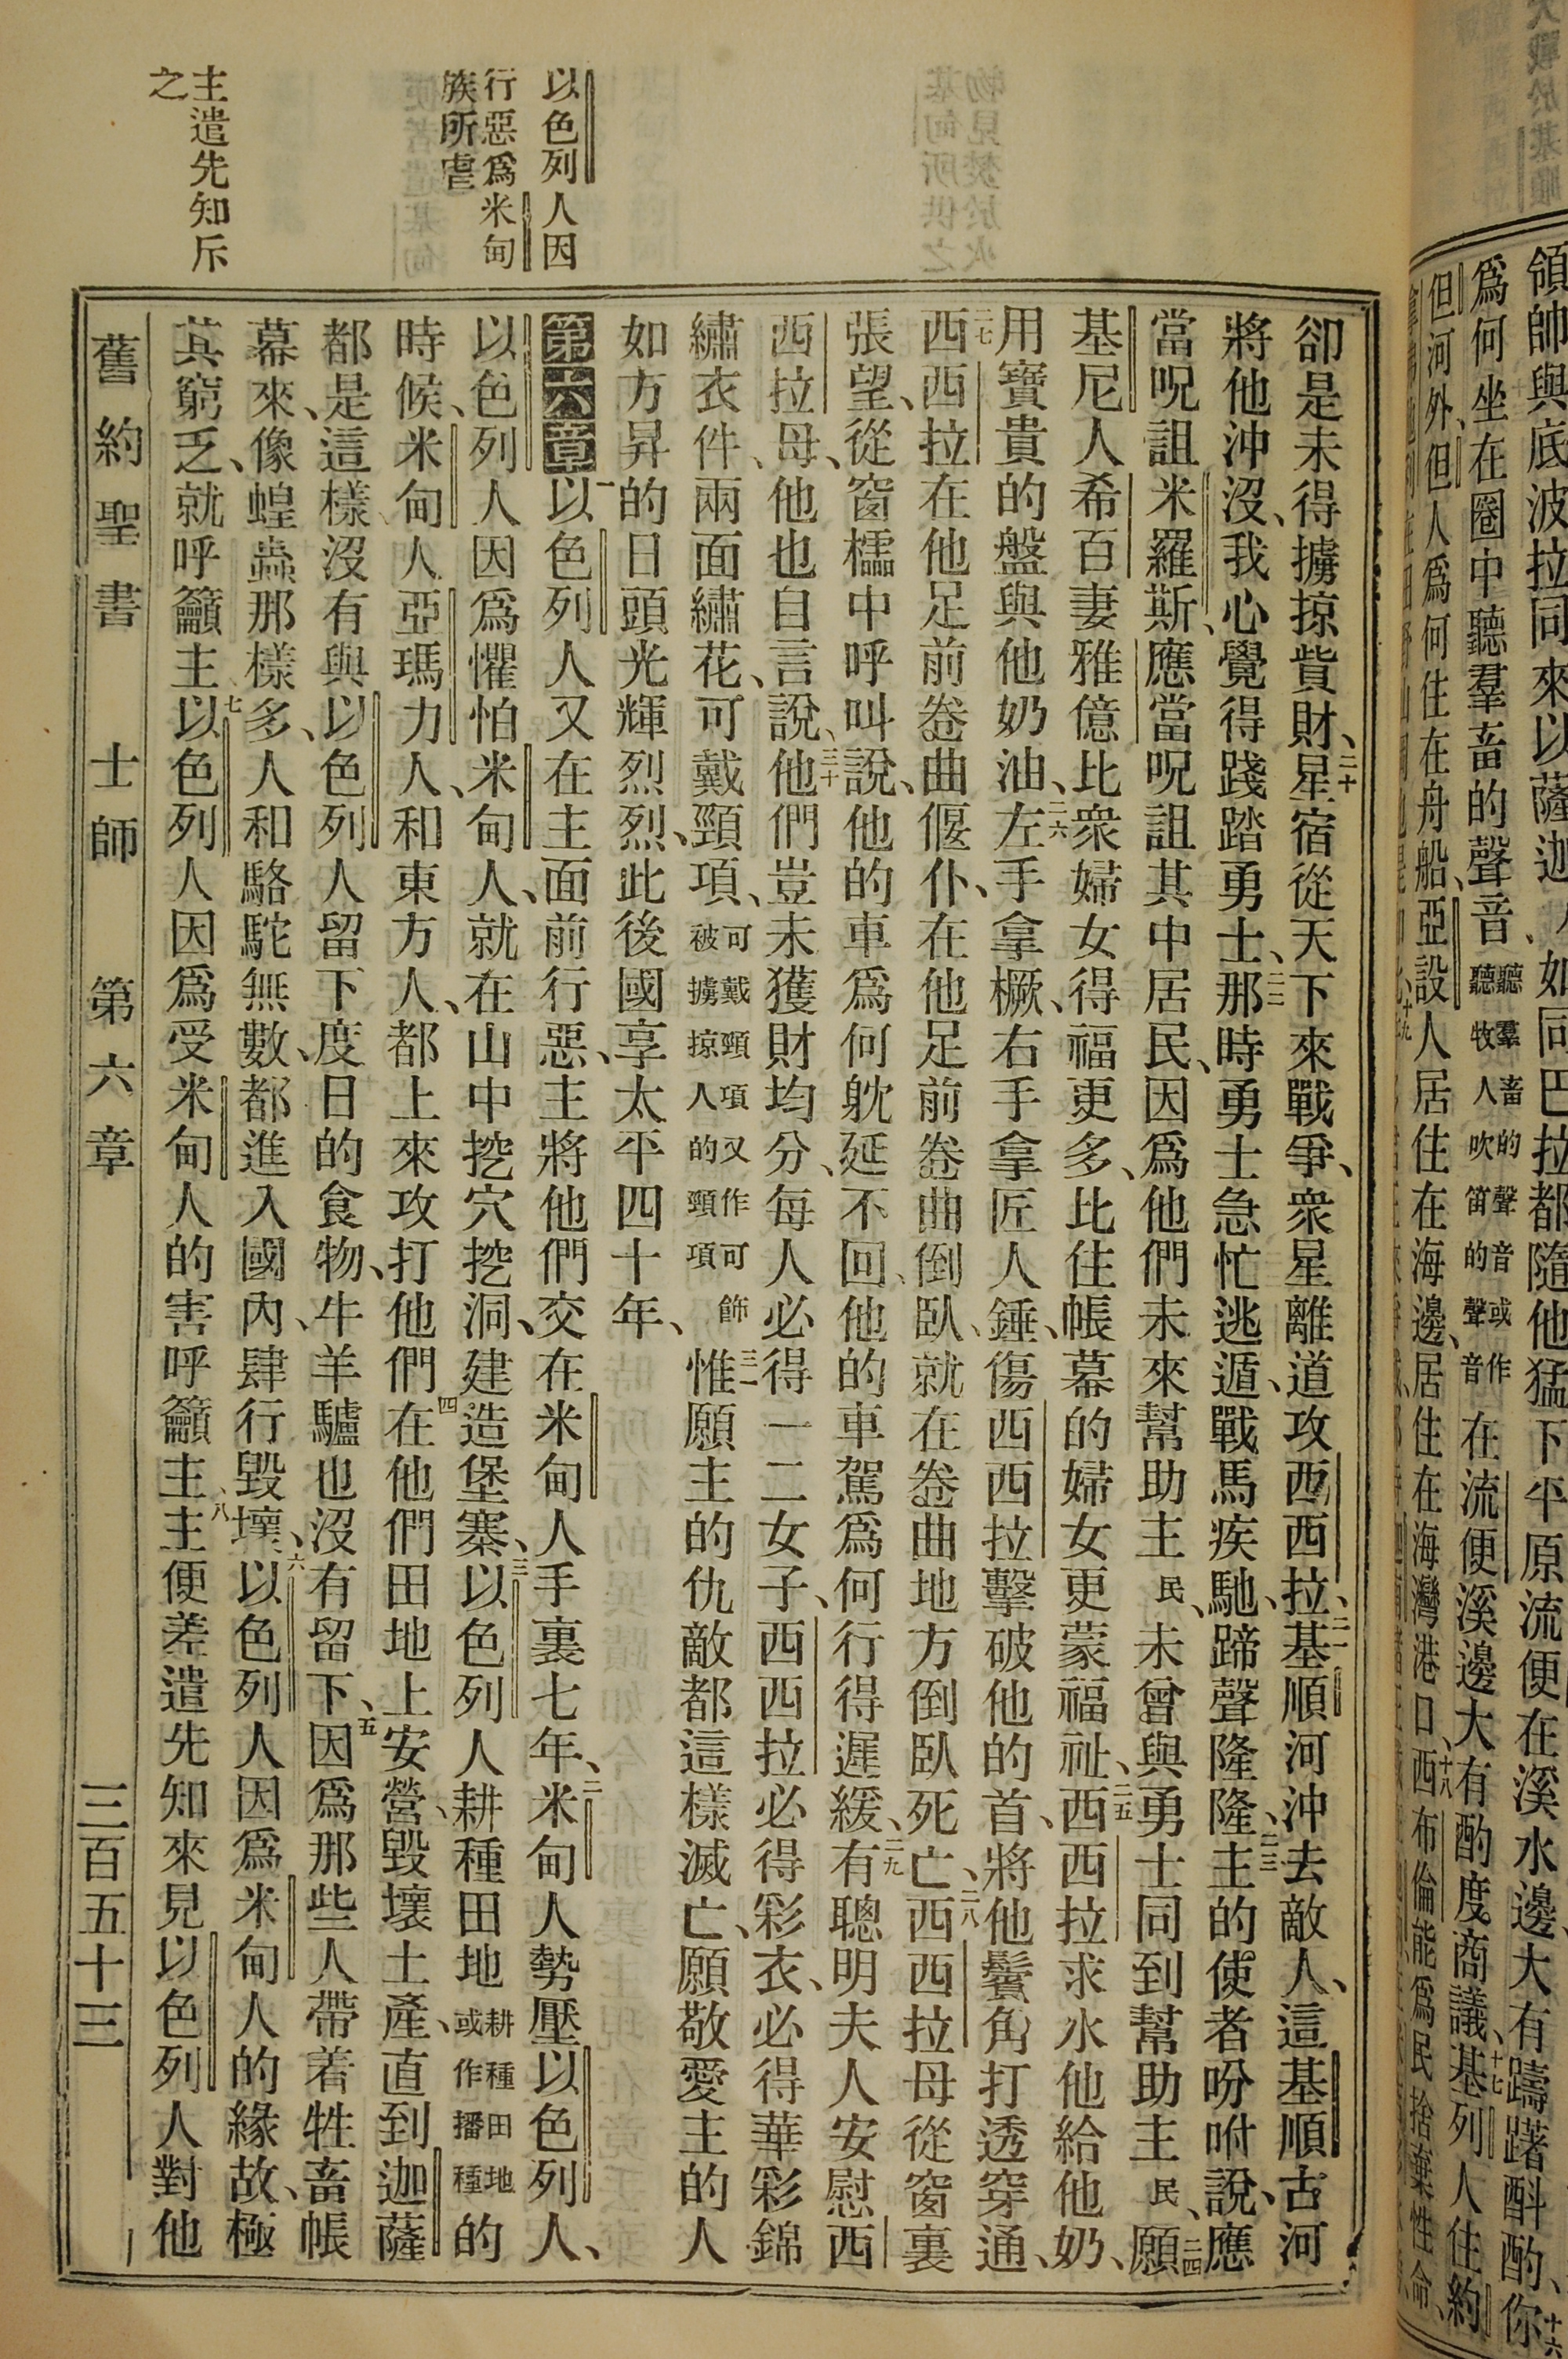 領帥與底波拉同來以薩迦人如同巴拉都隨他猛下平原流便在溪水邊、大有躊躇斟酌、十六你
爲何坐在圈中聽羣畜的聲音、聽羣畜的聲音或作聽牧人吹笛的聲音在流便溪邊大有酌度商議、十七基列人住約
但河外、但人爲何住在舟船、亞設人居住在海邊、居住在海灣港口、十八西布倫能爲民捨棄性命、
以色列人因
行惡爲米甸
族所虐
主遣先知斥
之
卻是未得擄掠貲財、二十星宿從天下來戰爭、衆星離道攻西西拉、二一基順河沖去敵人、這基順古河
將他沖沒、我心覺得踐踏勇士、二二那時勇士急忙逃遁、戰馬疾馳、蹄聲隆隆、二三主的使者吩咐說、應
當呪詛米羅斯、應當呪詛其中居民、因爲他們未來幫助主民、未曾與勇士同到幫助主民、二四願
基尼人希百妻雅億比衆婦女得福更多、比住帳幕的婦女更蒙福祉、二五西西拉求水他給他奶、
用寶貴的盤與他奶油、二六左手拿橛、右手拿匠人錘、傷西西拉擊破他的首、將他鬢角打透穿通、
二七西西拉在他足前卷曲偃仆、在他足前卷曲倒臥、就在卷曲地方倒臥死亡、二八西西拉母從窗裏
張望、從窗櫺中呼叫說、他的車爲何躭延不回、他的車駕爲何行得遲緩、二九有聰明夫人安慰西
西拉母、他也自言說、三十他們豈未獲財均分、每人必得一二女子、西西拉必得彩衣、必得華彩錦
繡衣件、兩面繡花、可戴頸項、可戴頸項又作可飾被擄掠人的頸項三一惟願主的仇敵都這樣滅亡、願敬愛主的人
如方昇的日頭光輝烈烈、此後國享太平四十年、
第六章一以色列人又在主面前行惡、主將他們交在米甸人手裏七年、二米甸人勢壓以色列人、
以色列人因爲懼怕米甸人、就在山中挖穴挖洞、建造堡寨、三以色列人耕種田地耕種田地或作播種的
時候、米甸人、亞瑪力人、和東方人、都上來攻打他們、四在他們田地上安營、毀壞土產、直到迦薩
都是這樣、沒有與以色列人留下度日的食物、牛羊驢也沒有留下、五因爲那些人帶着牲畜帳
幕來、像蝗蟲那樣多、人和駱駝無數、都進入國內、肆行毀壞、六以色列人因爲米甸人的緣故、極
其窮乏、就呼籲主、七以色列人因爲受米甸人的害呼籲主、八主便差遣先知來見以色列人對他
舊約聖書 士師 第六章 三百五十三